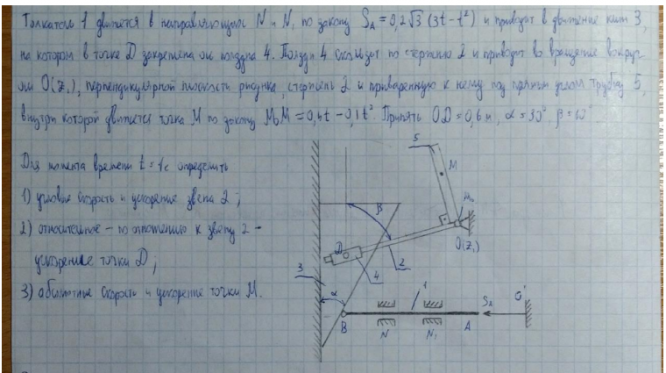 Толкатель 1 движется в направляющих N и N₁ по закону S_A = 0,2√3 (3t - t²) и приводит в движение клин 3,
на котором в точке D закреплена ось ползуна 4. Ползун 4 скользит по стержню 2 и приводит во вращение вокруг
оси O(Z₁), перпендикулярной плоскости рисунка, стержень 2 и приваренную к нему под прямым углом трубку 5,
внутри которой движется точка M по закону M₀M = 0,4t - 0,1t². Принять OD = 0,6 м, α = 30°, β = 60°.
Для момента времени t = 1с определить
1) угловые скорость и ускорение звена 2;
2) относительное - по отношению к звену 2 -
ускорение точки D;
3) абсолютные скорость и ускорение точки M.
5
M
β
M₀
O(Z₁)
D
3
4
2
α
1
S_A
O'
B
N
N₁
A